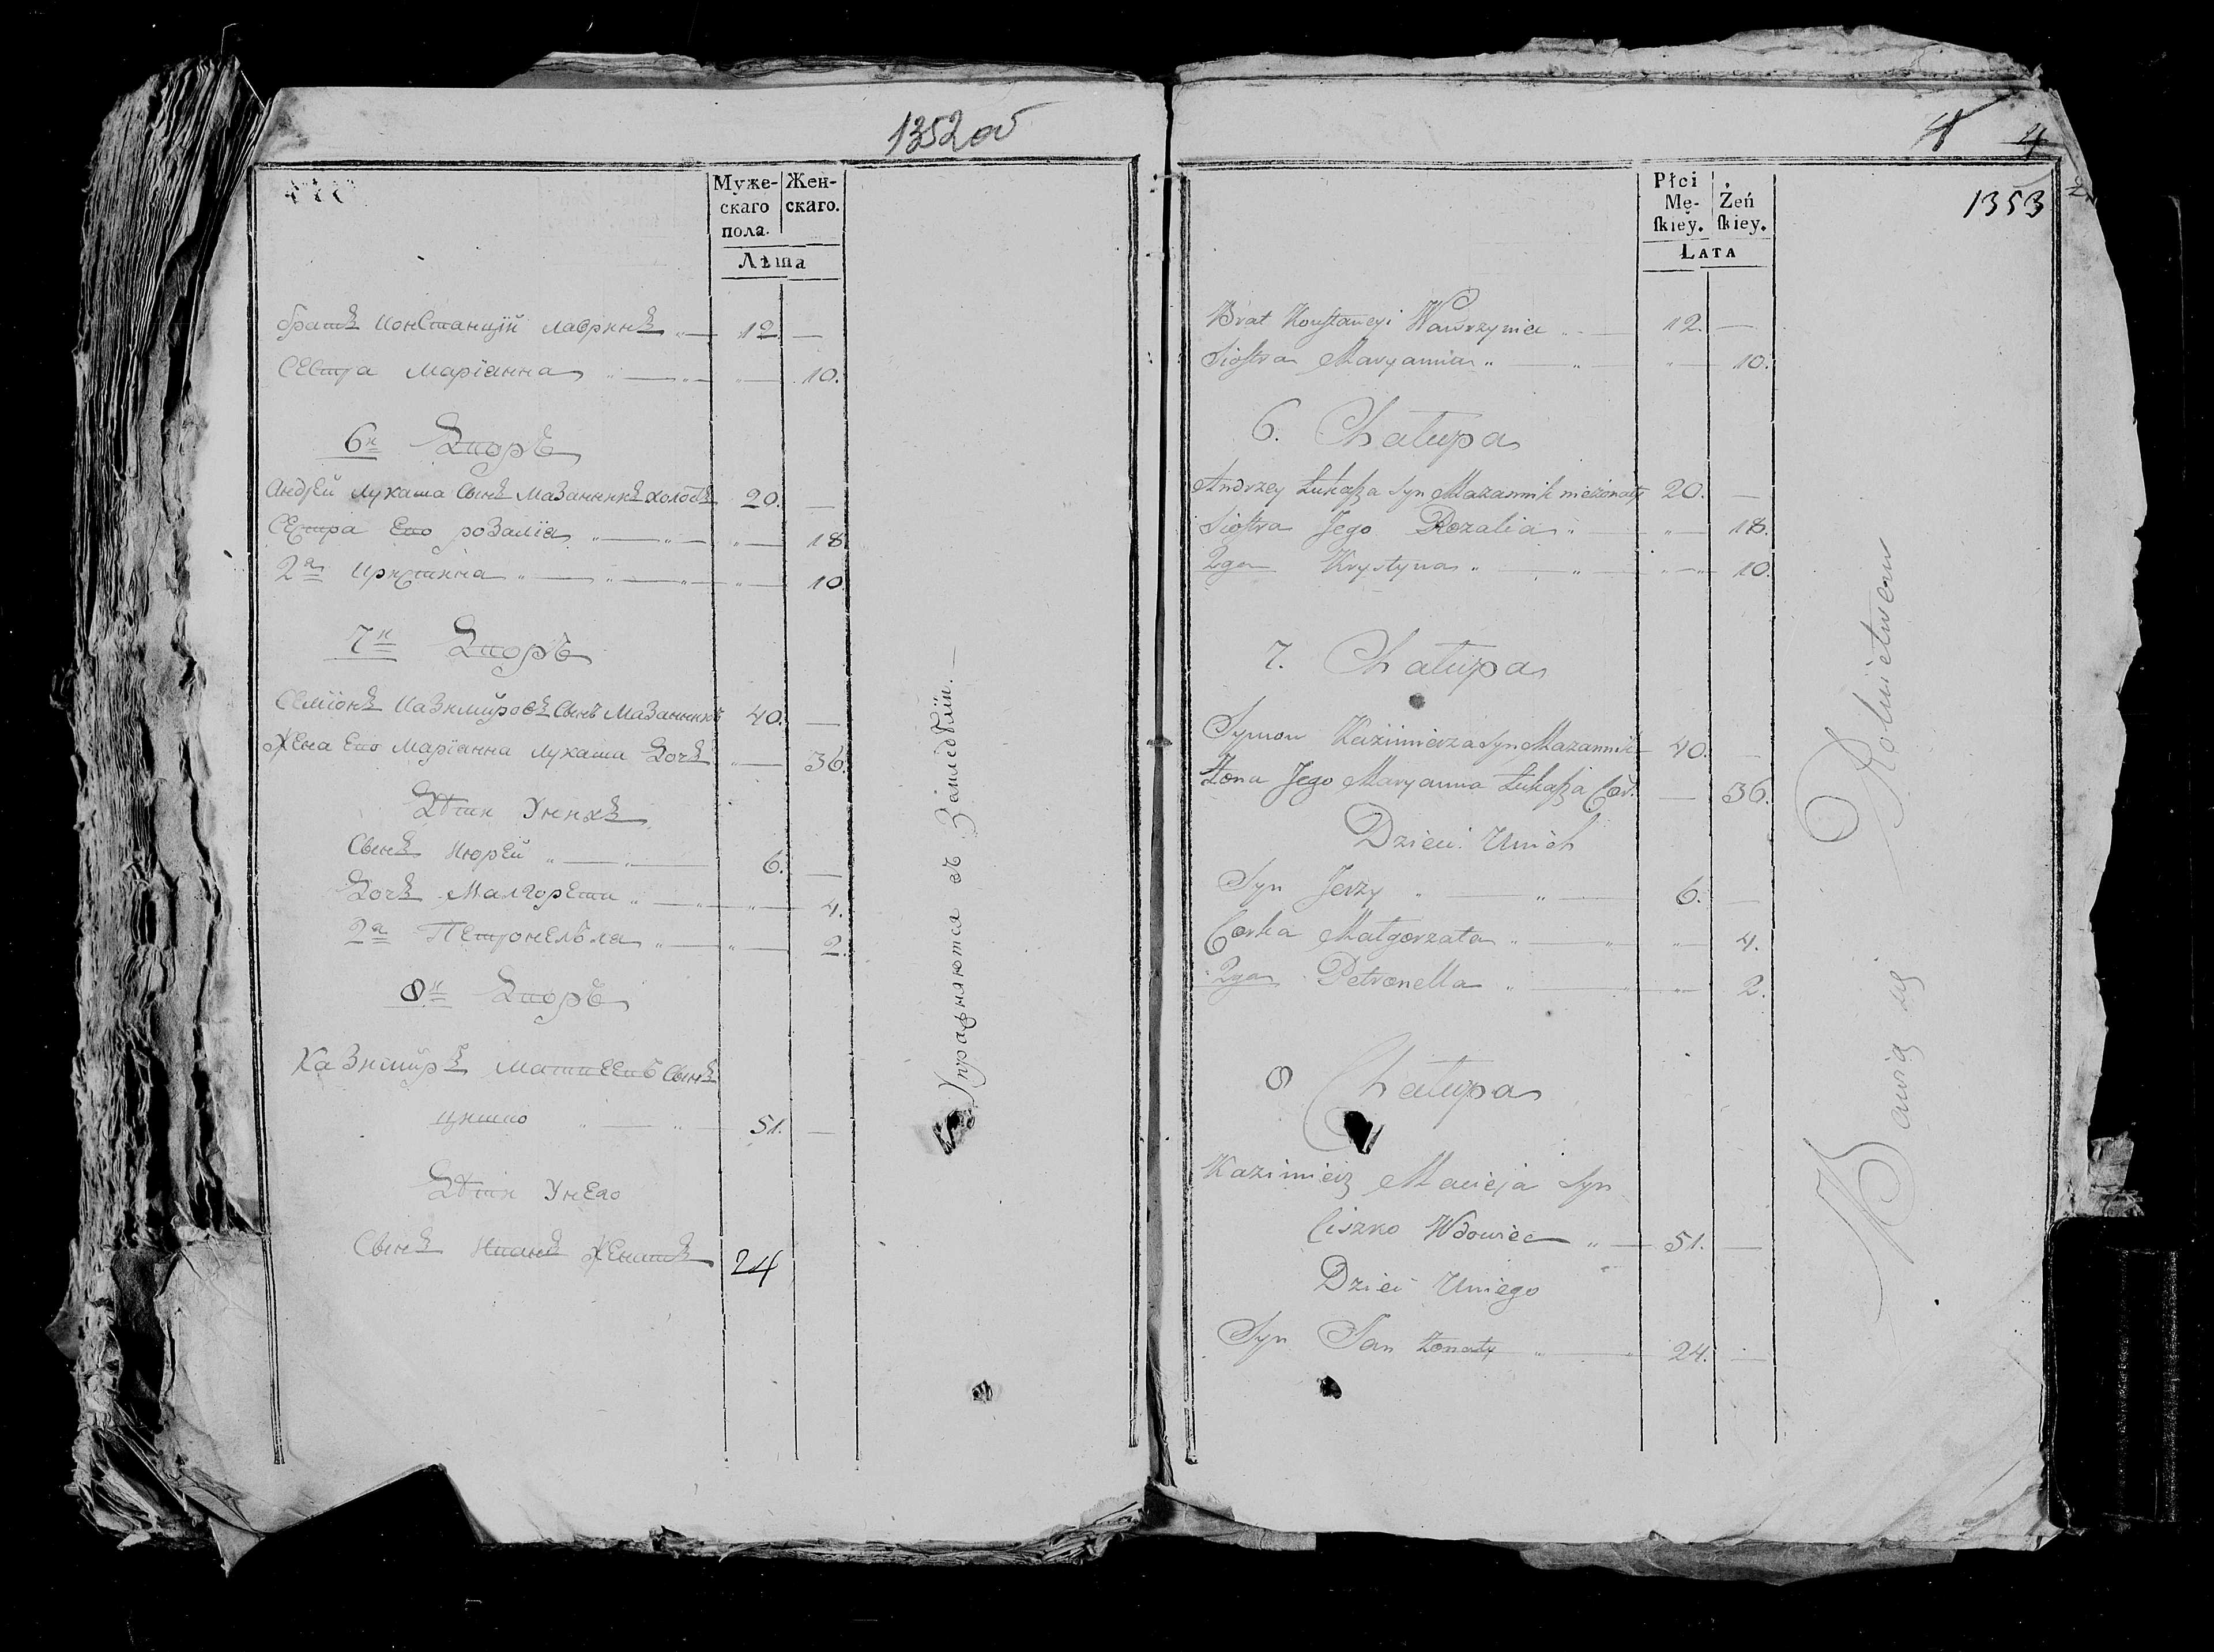 1352 об
Муже-
скаго
пола.
Жен-
скаго.
Лѣта
братъ Констанцій Лавринъ 12. —
Сестра Маріанна — 10.
6й Дворъ
Андрей Лукаша Сынъ Мазанникъ холостъ 20. —
Сестра Его розалія — 18
2я Кристина — 10.
7й Дворъ
Семіонъ Казимировъ Сынъ Мазанникъ 40. —
Жена Его Маріанна Лукаша Дочь — 36.
Дѣти Унихъ
Сынъ Юрей 6. —
Дочь Малгорета — 4.
2я Петронелла — 2.
8й Дворъ
Казимиръ Матеевъ Сынъ
Цишко 51. —
Дѣти Унего
Сынъ Иванъ Женатъ 24
Упражняются въ Земледѣліи. —
4 4
1353
Płci
Mę-
ſkiey.
Żeń
ſkiey.
Lata
Brat Konstancyi Wawrzyniec 12. —
Siostra Maryanna — 10.
6. Chałupa
Andrzey Łukasza Syn Mazannik nieżonaty 20. —
Siostra Jego Rozalia — 18.
2ga Krystyna — 10.
7. Chałupa
Symon Kazimierza Syn Mazannik 40. —
Żona Jego Maryanna Łukasza Cor. — 36.
Dzieci Unich
Syn Jerzy 6. —
Corka Małgorzata — 4.
2ga Petronella — 2.
8 Chałupa
Kazimierz Macieja Syn
Ciszko Wdowiec 51. —
Dzieci Uniego
Syn Jan żonaty 24. —
Bawią się Rolnictwem